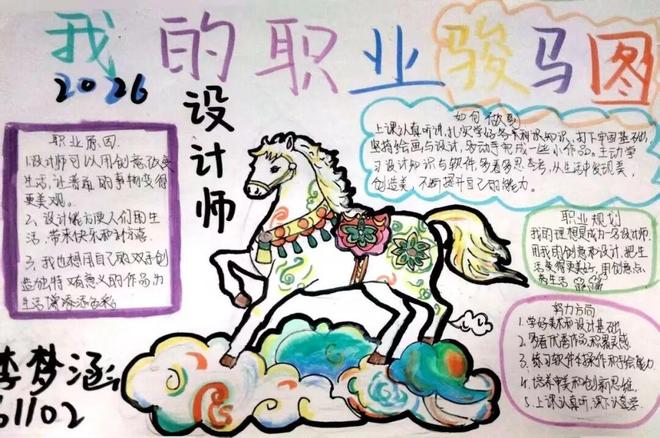 我的职业骏马图
2026
设计师
职业原因
1.设计师可以用创意改变
生活,让普通的事物变得
更美观。
2、设计能方便人们的生
活,带来快乐和舒适.
3、我也想用自己的双手创
造独特有意义的作品,为
生活增添活色彩。
李梦涵
61102
如何做到
上课认真听讲,扎实学好各美术知识,打下牢固基础,
坚持绘画与设计,多动手完成一些小作品。主动学
习设计知识与软件,多看多思考,从生活中发现美,
创造美,不断提升自己的能力。
职业规划
我的理想是成为一名设计师.
用我的创意和设计,把生
活变得更美好,用创意点
亮生活
努力方向
1、学好美术和设计基础
2、多看优秀作品积累灵感
3、练习软件操作和手绘能力
4、培养审美和创新思维
5、上课认真听,课下认真学